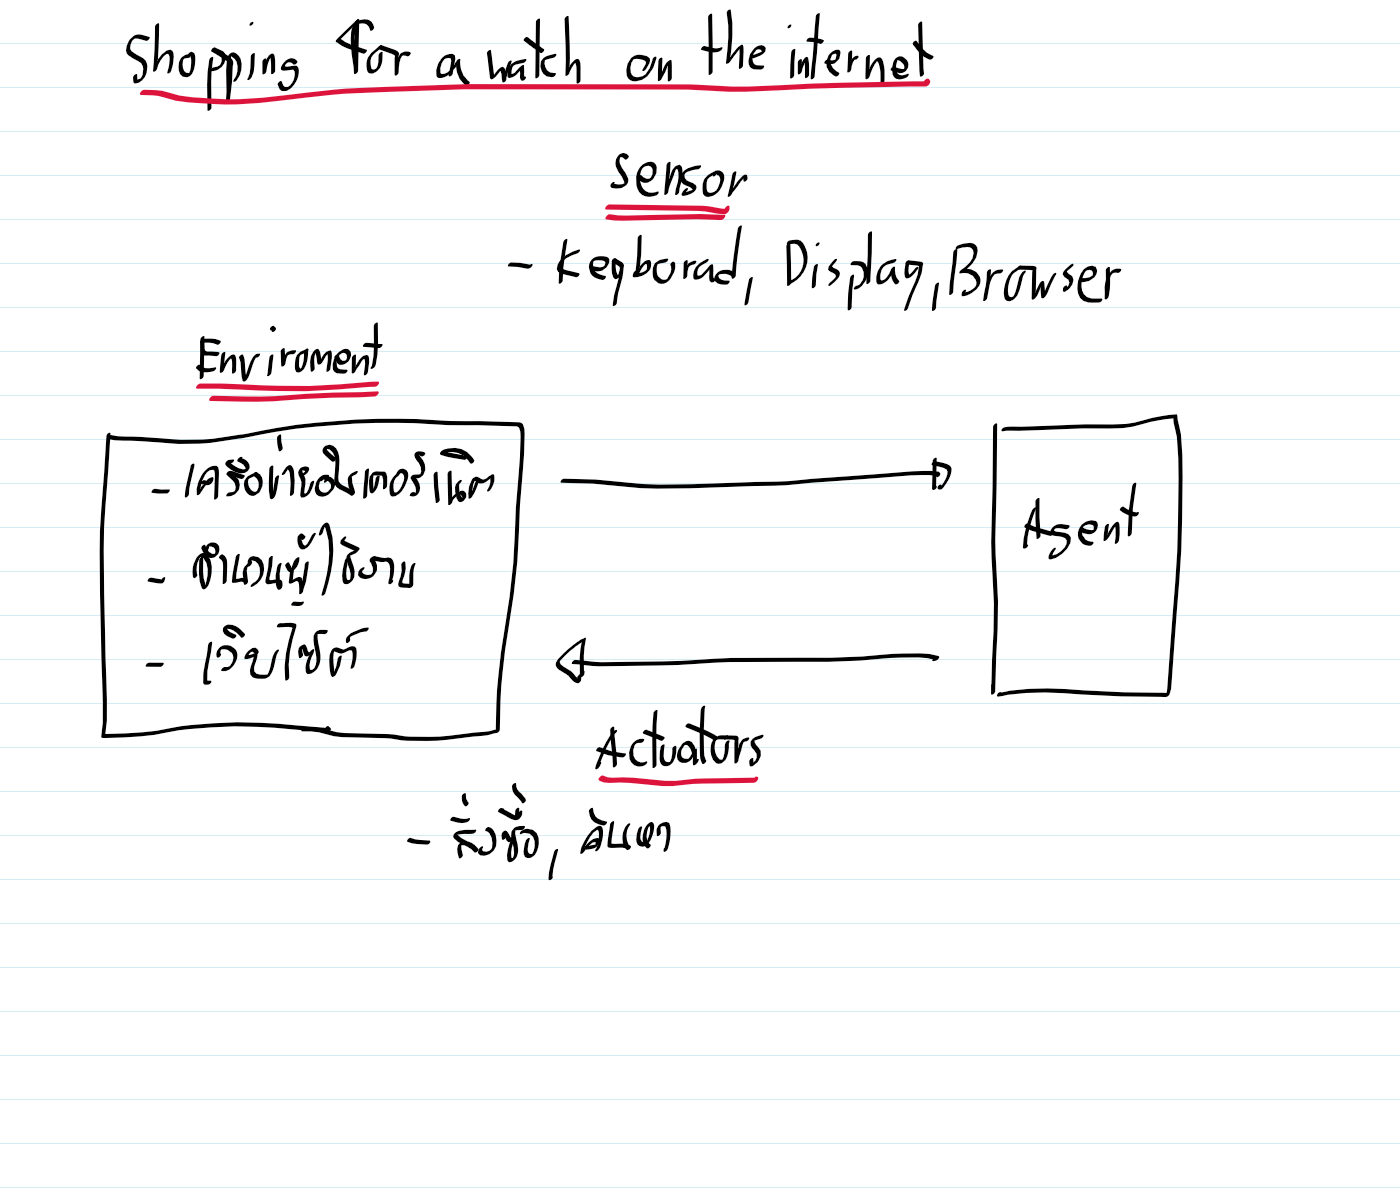 Shopping for a watch on the internet
Sensor
- Keyborad, Display, Browser
Enviroment
- เครือข่ายอินเตอร์เน็ต
- จำนวนผู้ใช้งาน
- เว็บไซต์
Agent
Actuators
- สั่งซื้อ, ค้นหา